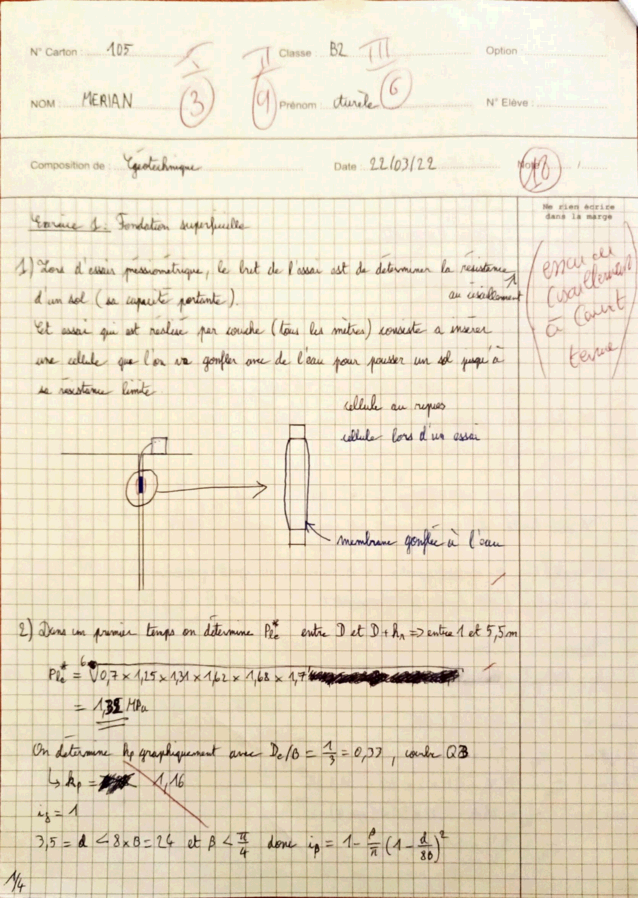 N° Carton : 105
I
II
Classe : B2
III
Option :
NOM : MERIAN
3
9
Prénom : Aurèle
6
N° Elève :
Composition de : Géotechnique
Date : 22/03/22
Note
18
/
Ne rien écrire
dans la marge
Exercice 1 : Fondation superficielle
1) Lors d'essais pressiométrique, le but de l'essai est de déterminer la résistance
au cisaillement
d'un sol (sa capacité portante).
Cet essai qui est réalisé par couche (tous les mètres) consiste a insérer
une cellule que l'on va gonfler avec de l'eau pour pousser un sol jusqu'à
sa résistance limite
essai de
cisaillement
à court
terme
cellule au repos
cellule lors d'un essai
membrane gonflée à l'eau
2) Dans un premier temps on détermine Ple* entre D et D + h₁ => entre 1 et 5,5m
Ple* = ⁶√0,7 × 1,25 × 1,31 × 1,62 × 1,68 × 1,7
= 1,32 MPa
On détermine kp graphiquement avec De/B = 1/3 = 0,33, courbe Q3
↳ kp = 1,16
iδ = 1
3,5 = d < 8 × B = 24 et β < π/4 donc iβ = 1 - β/π (1 - d/8B)²
1/4